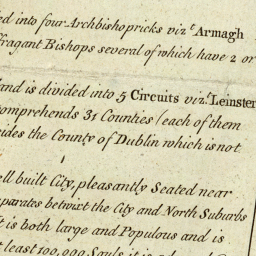 ed into four Archbishopricks vizt Armagh
ffragant Bishops several of which have 2 or
land is divided into 5 Circuits vizt Leinster
comprehends 31 Counties (each of them
sides the County of Dublin which is not
ell built City, pleasantly Seated near
parates betwixt the City and North Suburbs
t is both large and Populous and is
t least 100,000 Souls it is